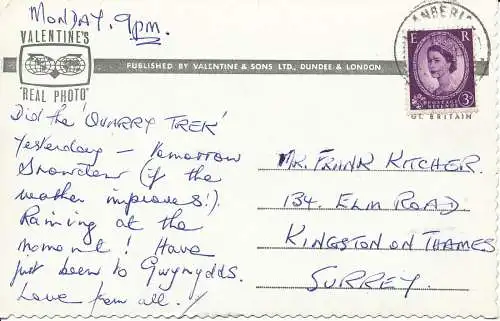 MONDAY. 9pm.
VALENTINE'S
"REAL PHOTO"
PUBLISHED BY VALENTINE & SONS LTD., DUNDEE & LONDON
Did the 'QUARRY TREK'
Yesterday – tomorrow
Snowdon (if the
weather improves!).
Raining at the
moment! Have
just been to Gwynydds.
Love from all!
LANBERIS
E R
POSTAGE
REVENUE
3D
GT. BRITAIN
MR. FRANK KITCHER.
134. ELM ROAD
KINGSTON ON THAMES
SURREY.